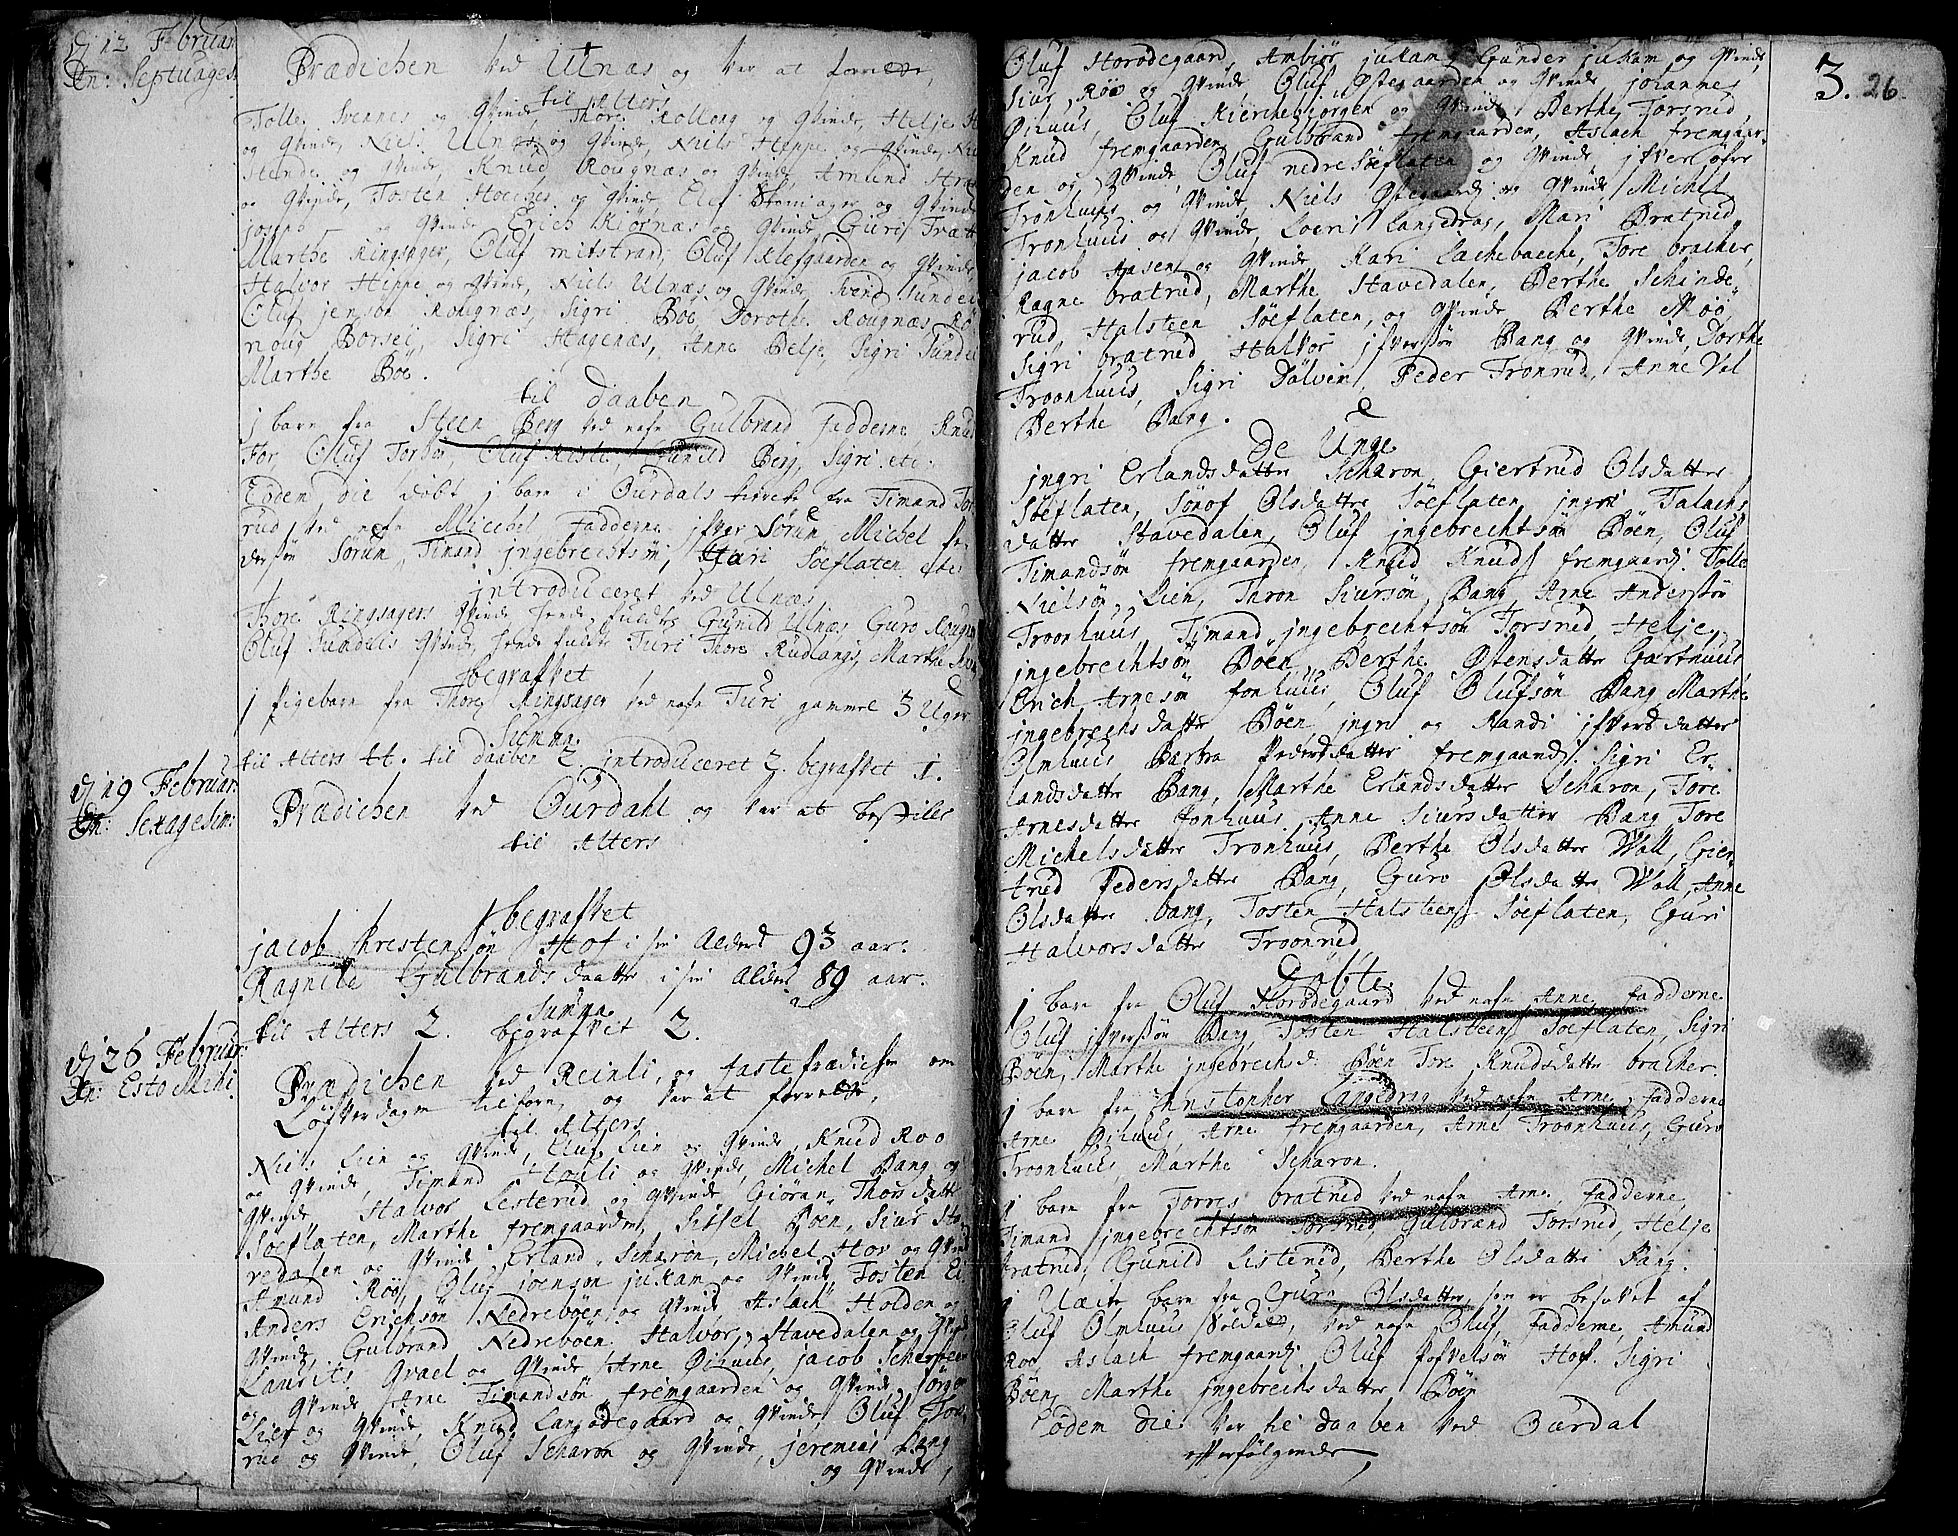 Dj 12 Februar
Dn: Septuages:
Prædichen ved Ulnæs og var at forrette,
til Alters
Tolle Svennes og Qvinde, Thore Kollong og Qvinde, Helje
og Qvinde, Niels Ulnæs og Qvinde, Niels Hippe og Qvinde,
Stende og Qvinde, Knud Rougnæs og Qvinde, Amund
og Qvinde, Tosten og Qvinde, Olef og Qvinde
josep og Qvinde Erich Kiørnæs og Qvinde, Guri
Marthe Ringsager, Oluf mitstrand, Oluf Klefgaarden og Qvinde
Halvor Hippe og Qvinde, Niels Ulnæs og Qvinde, Svend
Oluf jensøn Rougnæs, Sigri Böe, Dorothe Rougnæs,
noug Borsei, Sigri Hagenæs, Anne Belje, Sigri
Marthe Böe.
til Daaben
j barn fra Steen Berg ved nafn Gulbrand Fadderne Knud
For, Oluf Torbor, Oluf Risli, Gunild Berg, Sigri etc.
Eoden die døbt j barn i Ourdals kircke fra Timand
rud ved nafn Michel, Fadderne jfver Sørum, Michel
dersøn Sørum, Timand jngebrechtsøn, Kari Söeflaten etc
introduceret ved Ulnæs
Thore Ringsagers Qvinde, hende fuldte Gunild Ulnæs Guro
Oluf Qvinde, hende fulte Turi Thore Rudlangs, Marthe
begrafvet
j pigebarn fra Thore Ringsager ved nafn Turi gammel 3 Uger
Summa
til Alters 44. til daaben 2. introduceret 2. begrafvet 1.
Dj 19 Februar:
Dn: Sexagesim:
Prædichen ved Ourdahl og var at bestille
til Alters
begrafvet
jacob Chrestensøn Hof i sin Alders 93 aar.
Ragnile Gulbrands daatter i sin Alders 89 aar.
Summa
til Alters 2. begrafvet 2.
Dj 26 Februar:
Dn: Esto Mihi.
Prædichen ved Reinli, og fasteprædichen om
Löfverdagen tilforn, og var at forrette,
til Alters
Niels Lien og Qvinde, Oluf Lien og Qvinde, Knud Roo
og Qvinde, Timand Houli og Qvinde, Michel Bang og
Qvinde Halvor Lesterud og Qvinde, Giöran Thors datter
Söeflaten, Marthe fremgaarden, Sissel Böen, Siur
vedalen og Qvinde, Erland Scharon, Michel Hov og Qvinde
Amund Röo, Oluf joensøn jukam og Qvinde, Tosten
Anders Erichsøn Nedreböen og Qvinde Aslach Holden og
Qvinde, Gulbrand Nedreböen, Halvor Stavedalen og Qvinde
Laurits Qvael og Qvinde Arne Öihuus, jacob
og Qvinde Arne Timandsøn fremgaarden og Qvinde,
Lier og Qvinde, Knud Langødegaard og Qvinde, Oluf
rud og Qvinde, Oluf Scharon og Qvinde, jeremias Bang
og Qvinde
3. 26
Oluf Storødegaard, Ambiör jukam, Gunder jukam og Qvinde
Siur Röo og Qvinde, Oluf Östegaarden og Qvinde, johannes
Öihuus, Oluf Kierchebjorgen og Qvinde, Berthe Torsrud
Knud fremgaarden, Gulbrand fremgaarden, Aslach fremgaar-
den og Qvinde Oluf nedre Söeflaten og Qvinde, jfver öfre
Tronhuus og Qvinde Niels Östegaard og Qvinde, Michel
Tronhuus og Qvinde, Loeri Langedrag, Mari Bratrud
jacob Aasen og Qvinde Kari Lachebacche, Tore bracher,
Ragne bratrud, Marthe Stavedalen, Berthe Schinde-
rud, Halsteen Söeflaten, og Qvinde Berthe Moö,
Sigri bratrud, Halvor jfversøn Bang og Qvinde, Dorthe
Troonhuus, Sigri Dölven, Peder Tronrud, Anne Vol
Berthe Bang.
De Unge
jngri Erlandsdatter Scharon, Giertrud Olsdatter
Söeflaten, Sönof Olsdatter Söeflaten, jngri Falachs
datter Stavedalen, Oluf jngebrechtsøn Böen, Oluf
Timandsøn fremgaarden, Knud Knuds fremgaard, Tolle
Nielsøn Lien, Thron Siursøn Bang, Arne Andersøn
Troonhuus, Timand jngebrechtsøn Torsrud, Helje
jngebrechtsøn Böen, Berthe Östensdatter Garthuus
Erich Arnesøn fonhuus, Oluf Olufsøn Bang, Marthe
jngebrechsdatter Böen, jngri og Randi jfversdatter
Olmhuus Barbra Pedersdatter fremgaard. Sigri Er-
landsdatter Bang, Marthe Erlandsdatter Scharon, Tore
Arnesdatter fonhuus, Anne Siursdatter Bang Tore
Michelsdatter Tronhuus, Berthe Olsdatter Wall, Gier-
trud Pedersdatter Bang, Guro Olsdatter Wall, Anne
Olsdatter bang, Tosten Halsteens Söeflaten, Guri
Halvorsdatter Troonrud
Döbte.
j barn fra Oluf Storødegaard ved nafn Anne, fadderne
Oluf jfversøn Bang, Tosten Halsteens Söeflaten, Sigri
Böen, Marthe jngebrechsd. Böen Tore Knudsdatter bracher.
j barn fra Christopher Langedrag ved nafn Arne, Fadderne
Arne Öihuus, Arne fremgaarden, Arne Troonhuus, Guro
Troonhuus, Marthe Scharon.
j barn fra Torres bratrud ved nafn Arne, fadderne
Timand jngebrechtsøn Torsrud, Gulbrand Torsrud, Helje
bratrud, Gunild Listerud, Berthe Olsdatter Bang.
j Uæcte barn fra Guro Olsdatter, som er besofvet af
Oluf Olmhuus Soldatt, ved nafn Oluf, fadderne Amund
Roo, Aslach fremgaard, Oluf Pofvelsøn Hof. Sigri
Böen, Marthe jngebrechsdatter Böen
Eodem die var til daaben ved Ourdal
efterfølgende